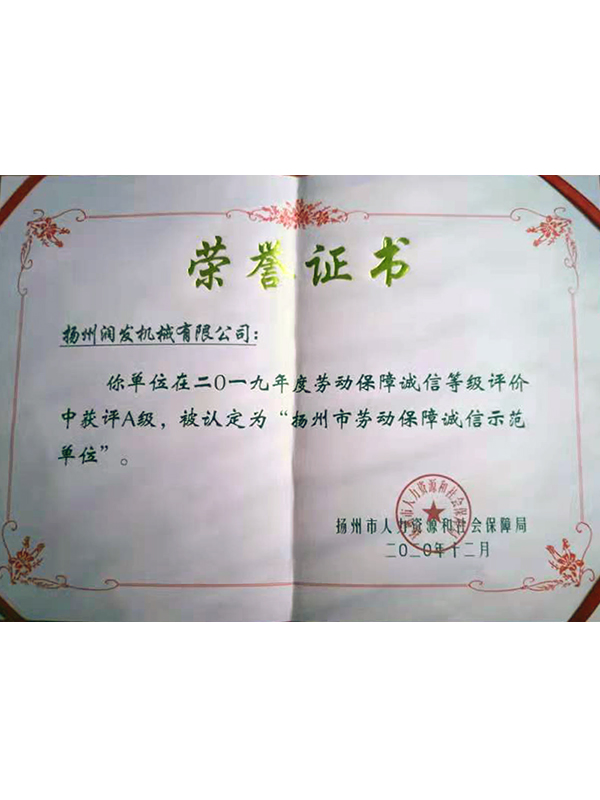 荣誉证书
扬州润发机械有限公司：
你单位在二〇一九年度劳动保障诚信等级评价
中获评A级，被认定为“扬州市劳动保障诚信示范
单位”。
扬州市人力资源和社会保障局
二〇二〇年十二月